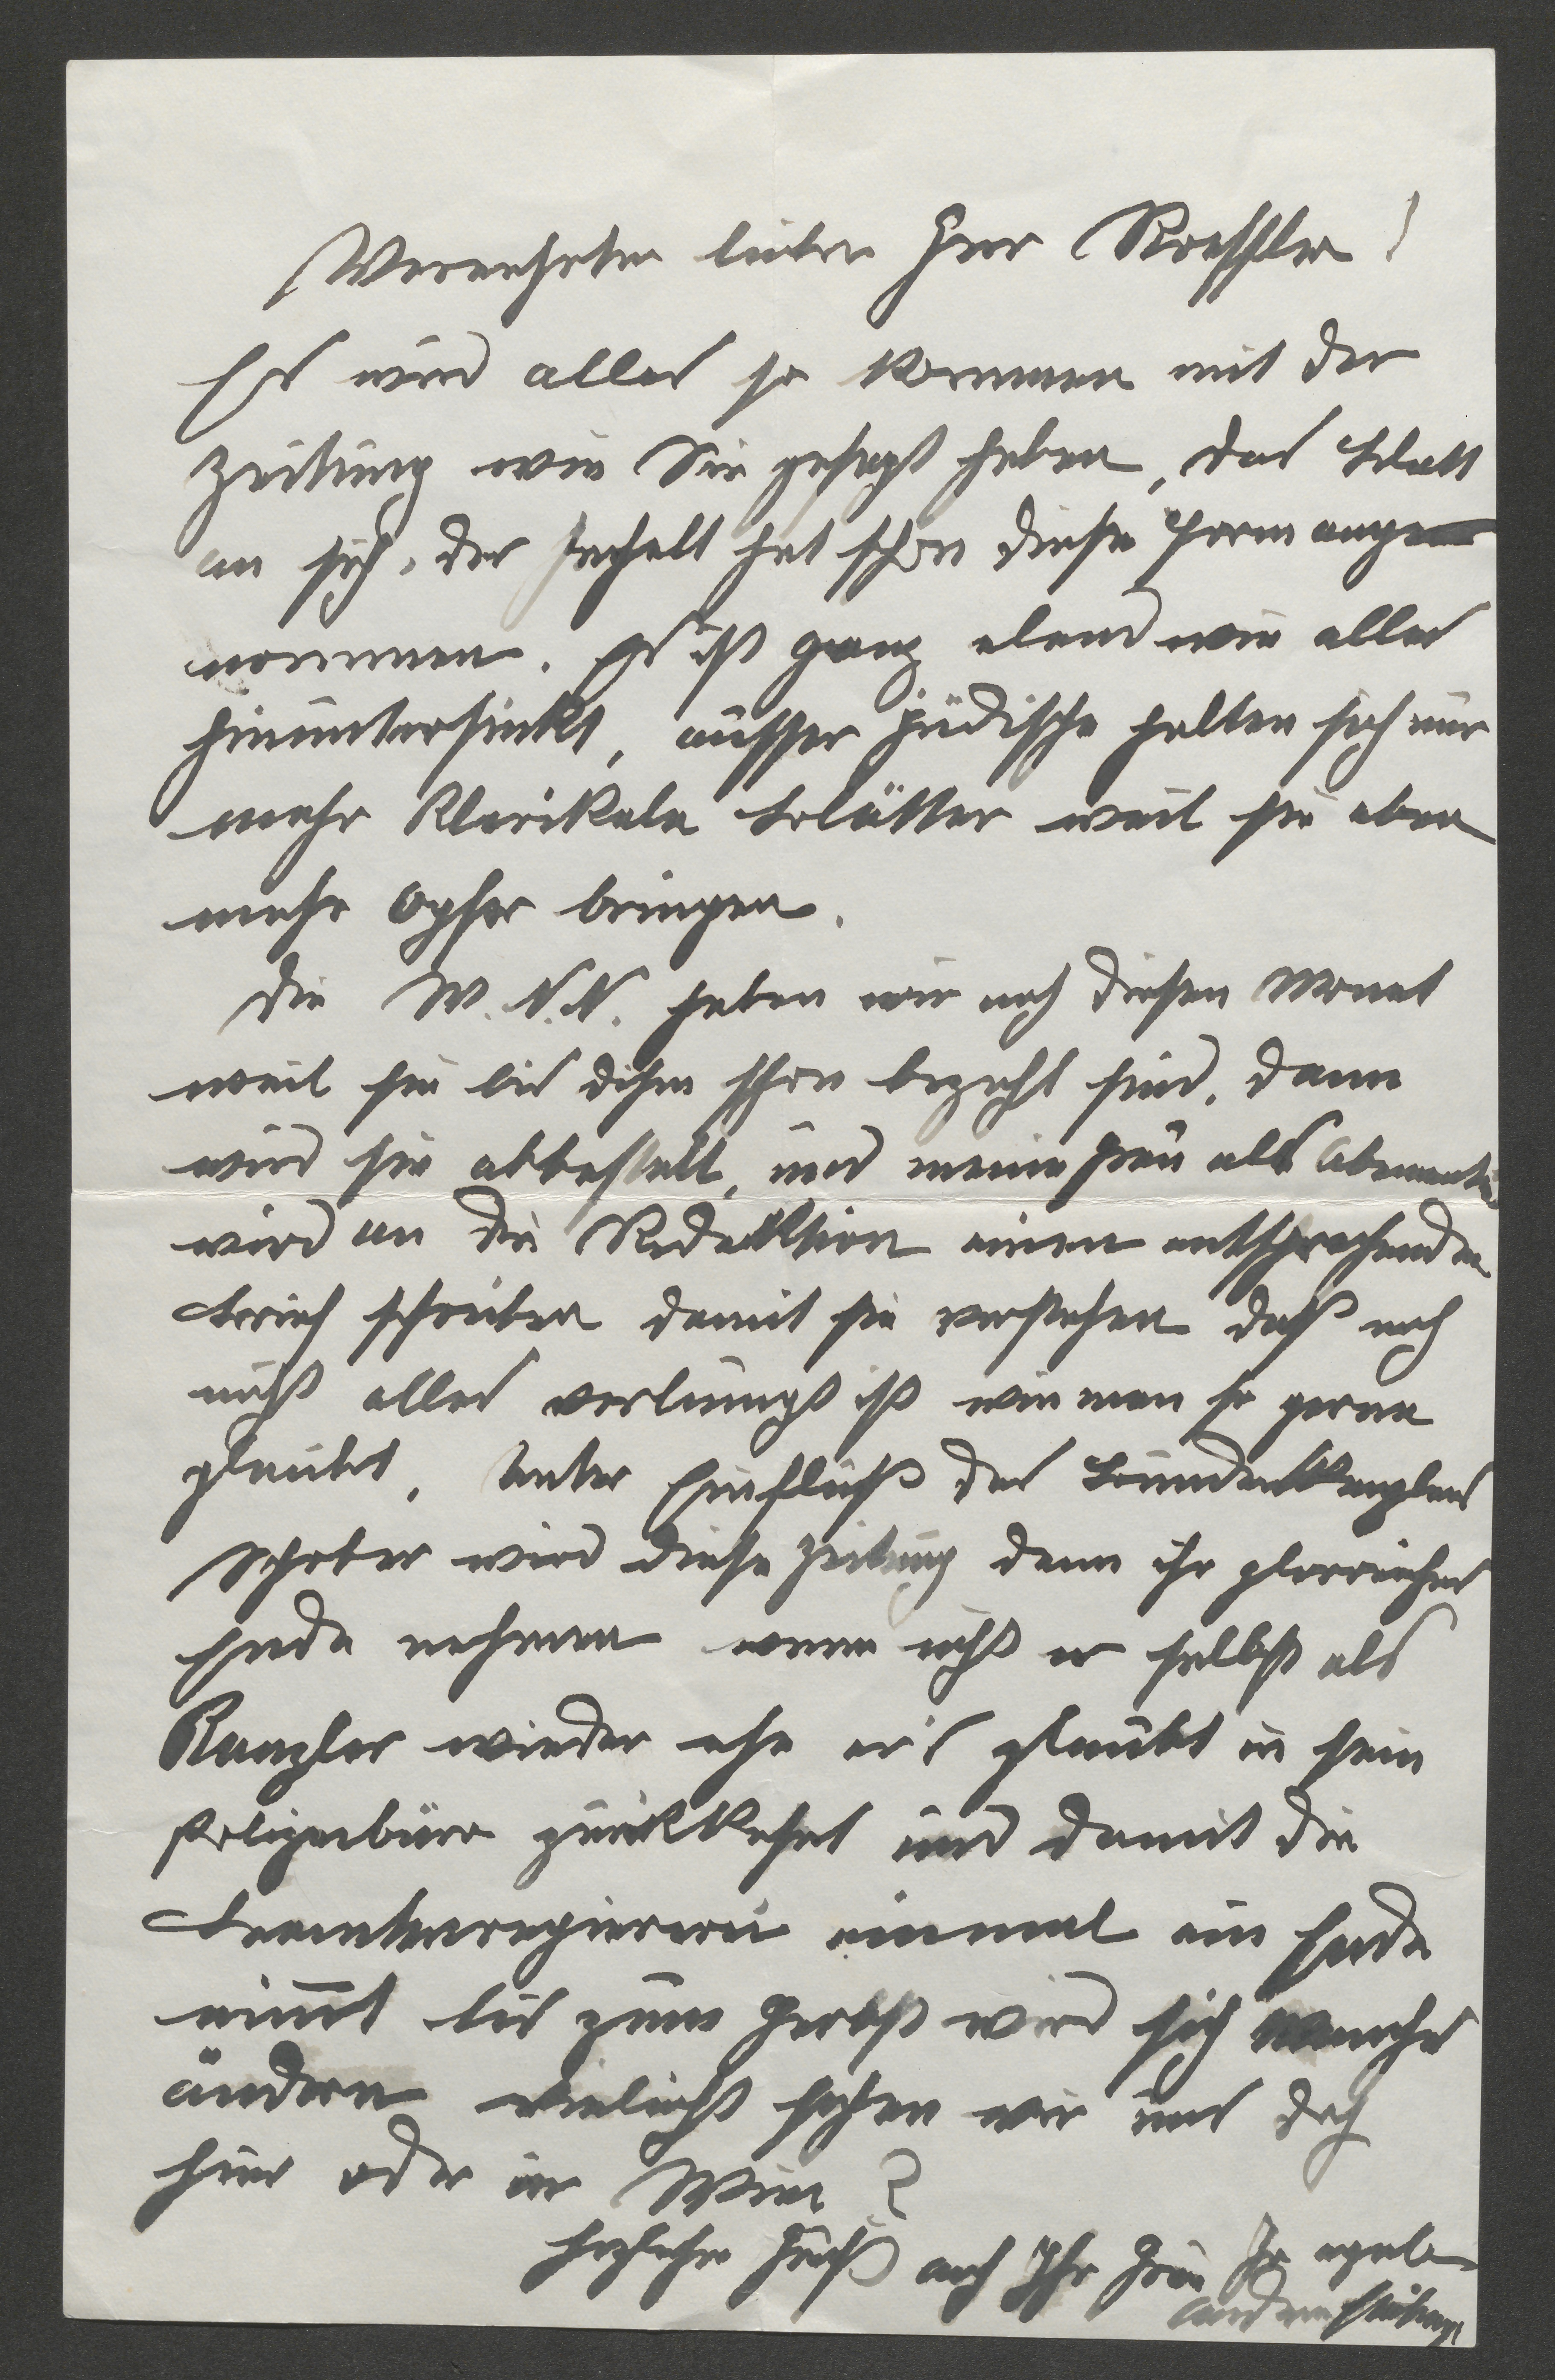 Verehrter lieber Herr Roessler!
Es wird alles so kommen mit der
Zeitung wie Sie gesagt haben, das Blatt
an sich, der Inhalt hat schon diese Form ange
nommen. Es ist ganz elend wie alles
hinuntersinkt, ausser jüdische halten sich nur
mehr klerikale Blätter weil sie eben
mehr Opfer bringen.
Die W.N.N. haben wir noch diesen Monat
weil sie bis dahin schon bezahlt sind, dann
wird sie abbestellt, und meine Frau als
wird an die Redaktion einen entsprechenden
Brief schreiben damit sie verstehen daß noch
nicht alles verlumpt ist wie man so gerne
glaubt. Unter Einfluß des Bundeskanzlers
Schober wird diese Zeitung dann ihr glorreiches
Ende nehmen wenn nicht er selbst als
Kanzler wieder ehe er's glaubt in sein
Polizeibüro zurückkehrt und damit die
Beamtenregiererei einmal ein Ende
nimmt bis zum Herbst wird sich manches
ändern vielleicht sehen wir uns doch
hier oder in Wien?
Herzliche Grüße auch Ihr Frau Ihr